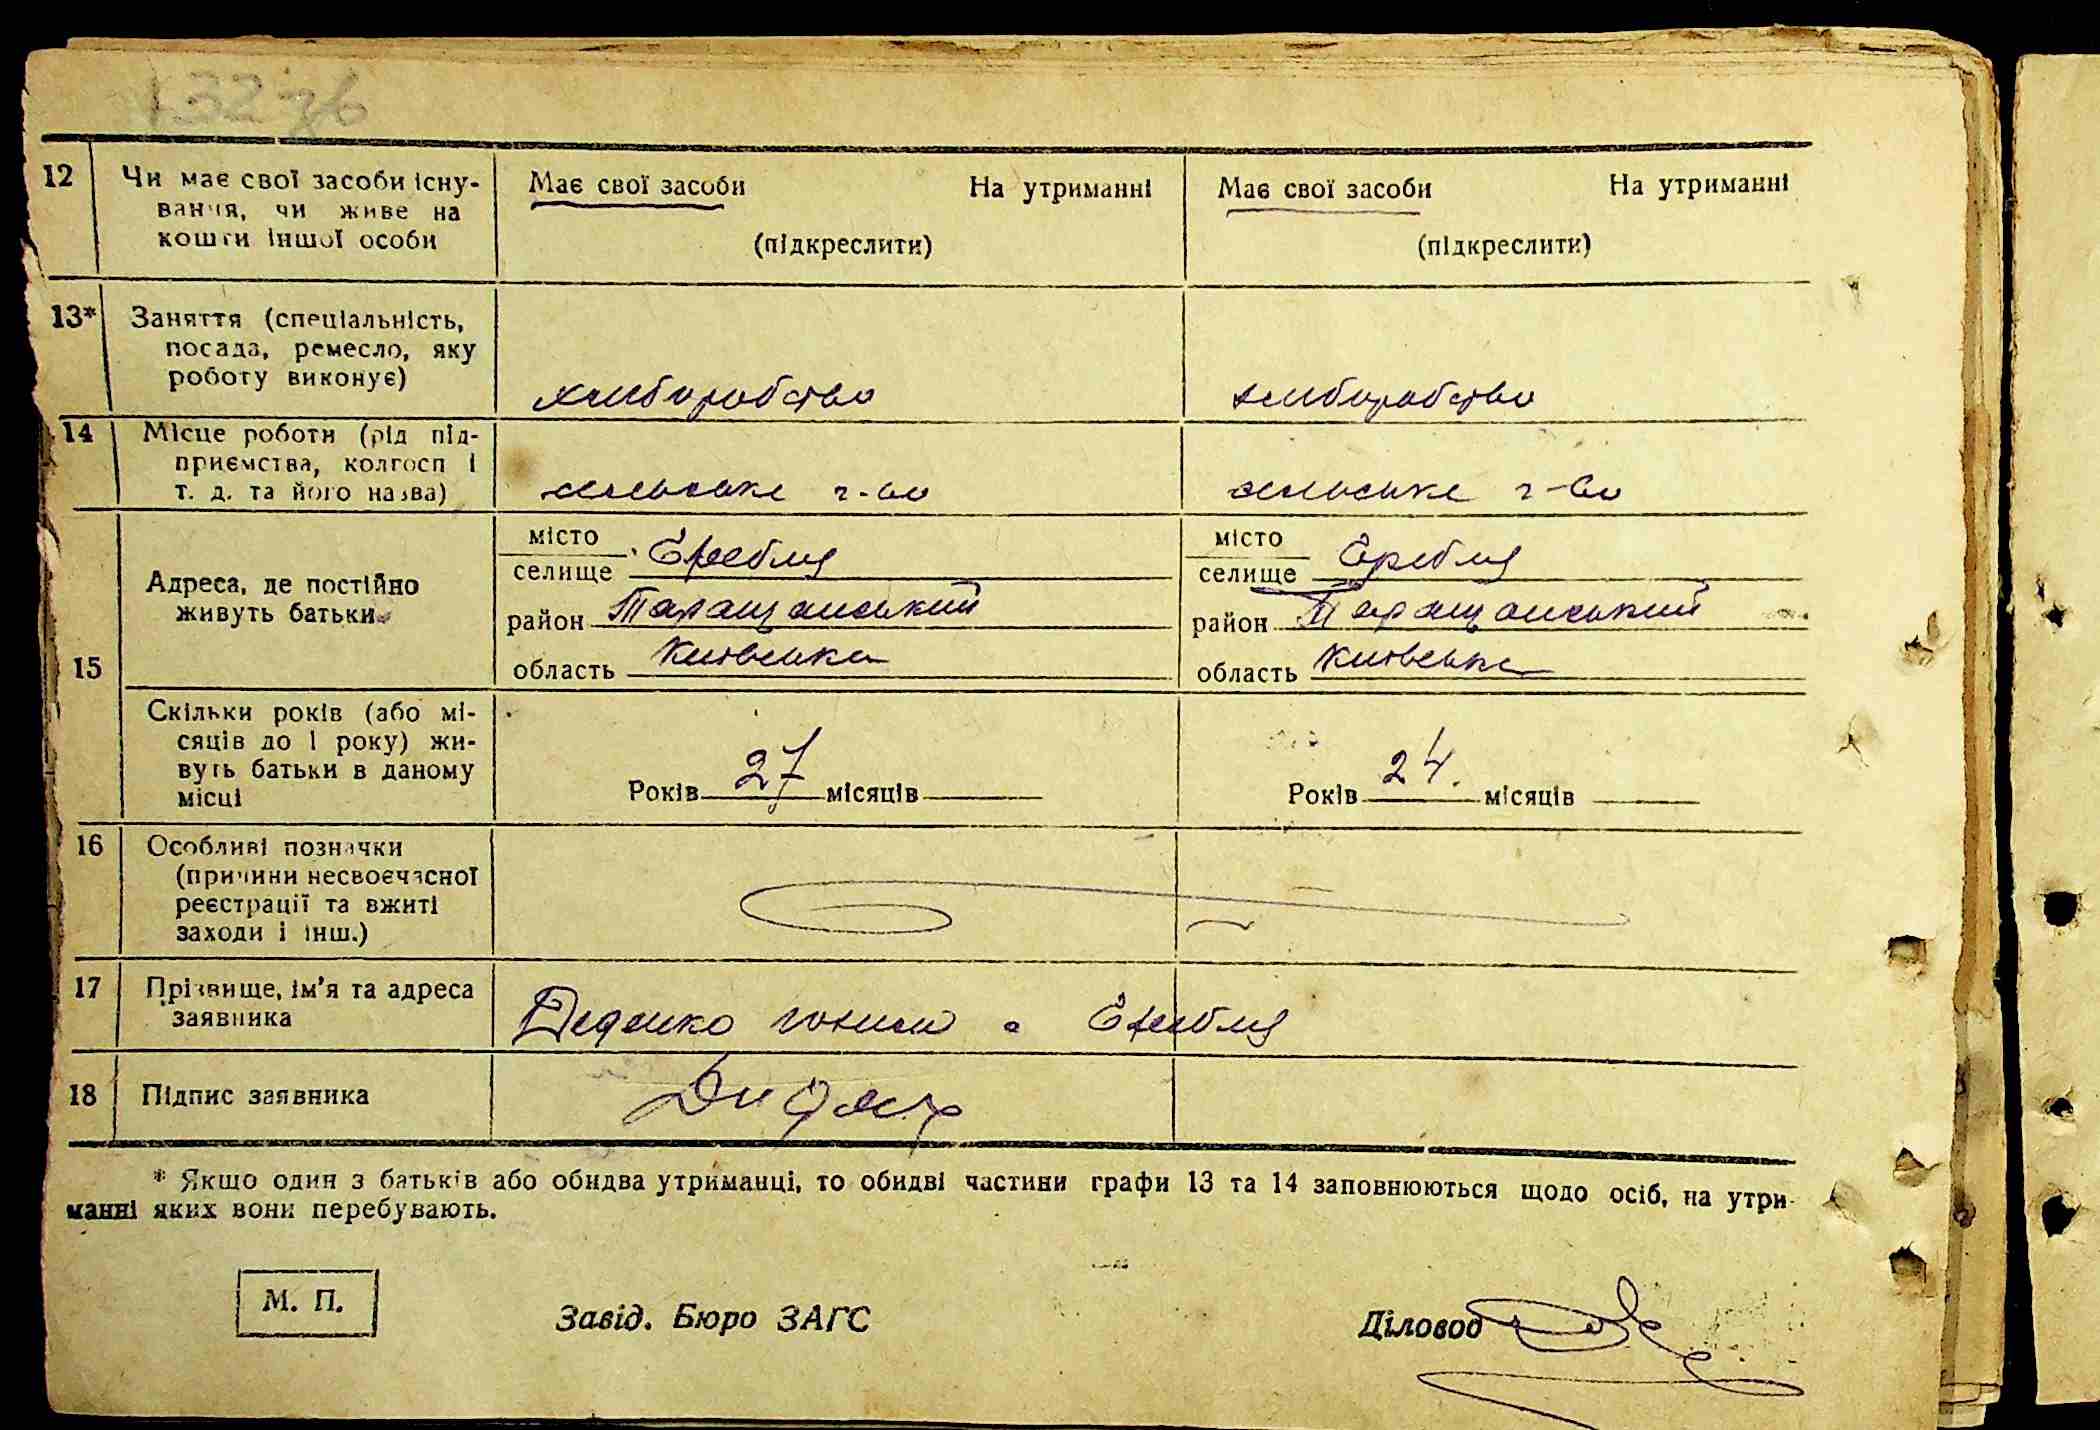 132 зв
12 Чи має свої засоби існу- Має свої засоби На утриманні Має свої засоби На утриманні
вання, чи живе на
кошти іншої особи (підкреслити) (підкреслити)
13* Заняття (спеціальність,
посада, ремесло, яку
роботу виконує) хліборобство хліборобство
14 Місце роботи (рід під-
приємства, колгосп і
т. д. та його назва) сельське г-во сельське г-во
15 Адреса, де постійно живуть батьки
місто Гребля місто Гребля
селище селище
район Таращанський район Таращанський
область Київська область Київська
Скільки років (або мі-
сяців до 1 року) жи-
вуть батьки в даному
місці Років 27 місяців Років 24. місяців
16 Особливі позначки
(причини несвоєчасної
реєстрації та вжиті
заходи і інш.)
17 Прізвище, ім'я та адреса
заявника Гребля
18 Підпис заявника
* Якщо один з батьків або обидва утриманці, то обидві частини графи 13 та 14 заповнюються щодо осіб, на утри-
манні яких вони перебувають.
М. П. Завід. Бюро ЗАГС Діловод